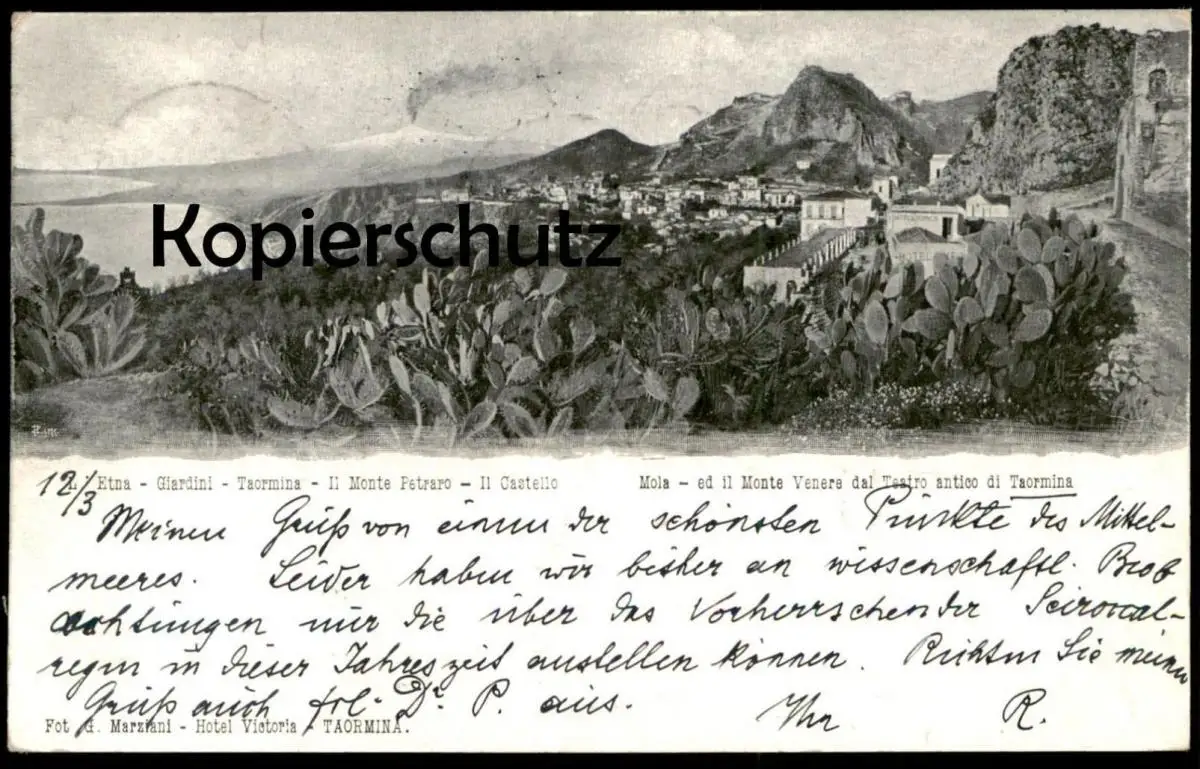 Kopierschutz
Etna - Giardini - Taormina - Il Monte Petraro - Il Castello Mola - ed il Monte Venere dal Teatro antico di Taormina
12/3
Meinen Gruß von einem der schönsten Punkte des Mittel-
meeres. Leider haben wir bisher an wissenschaftl. Beob
achtungen nur die über das Vorherrschen der Sciroccal-
regen in dieser Jahreszeit anstellen können. Richten Sie meinen
Gruß auch frl. Dr. P. aus.
Ihr R.
Fot. G. Marziani - Hotel Victoria - TAORMINA.